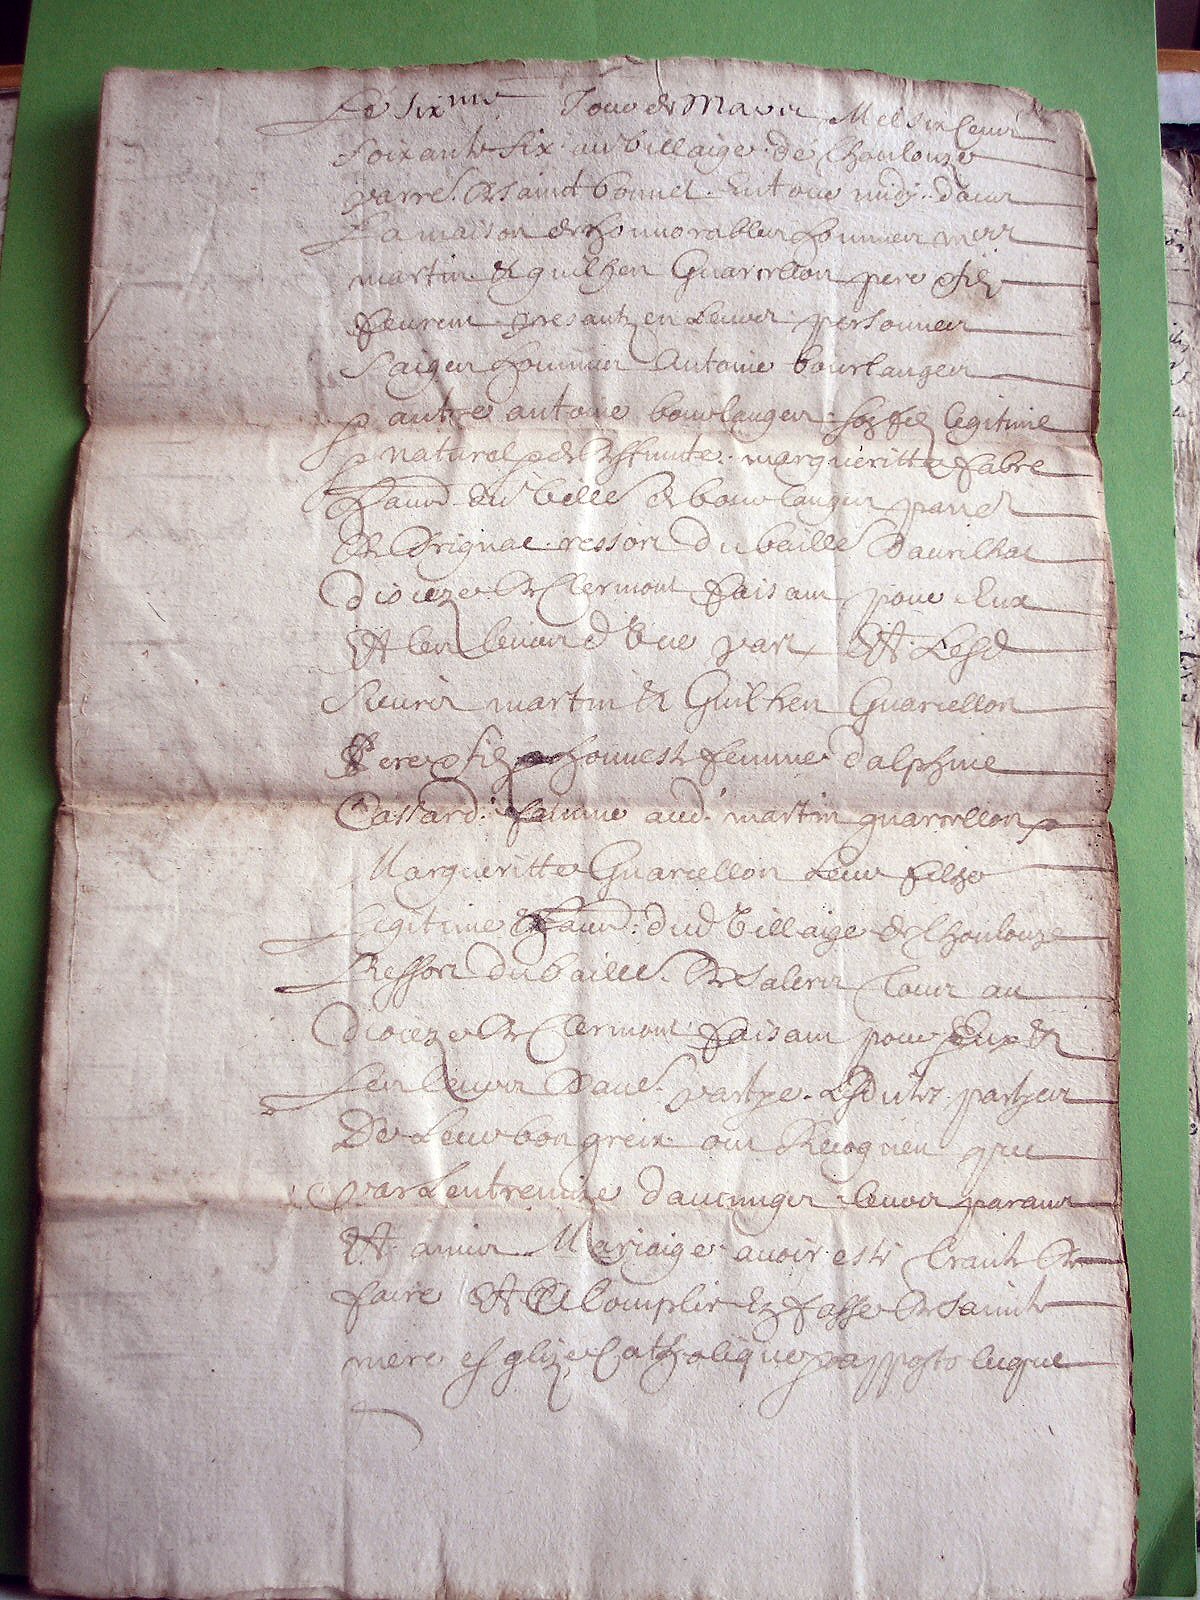 Le six me Jour de Mars Mil six cens
soixante six au villaige de Choulouze
parre. de saint bonnet. Entour midy. dans
La maison de honnorables hommes
martin et guilhen Guarcellon pere et filz
feurent presantz en Leurs personnes
saiges hommes Antoine bourlanges
et autre antoine bourlanges son filz legitime
et naturel et de deffuncte margueritte fabre
habt. du ville de bourlanges parr. de
de Drignac ressort du baille Daurilhac
dioceze de Clermont faisant pour Eux
Et les leurs d'Une part Et Lesd
sieurs martin et Guilhen Guarcellon
Pere et filz et honneste femme dalphine
Cassard. femme aud. martin guarcellon et
Margueritte Guarcellon Leur filhe
Legitime et habt. dud Villaige de Choulouze
Ressort du baille. de Salers tour au
dioceze de Clermont faisant pour Eux et
Les leurs Daue. partye. Lesduites partyes
De Leur bon grein ont Recogneu que
par Lentremize daucunges leurs parans
Et amis Mariaige avoir este traite de
faire Et Acomplir En fasse de sainte
mere esglize Catholique apposto licque